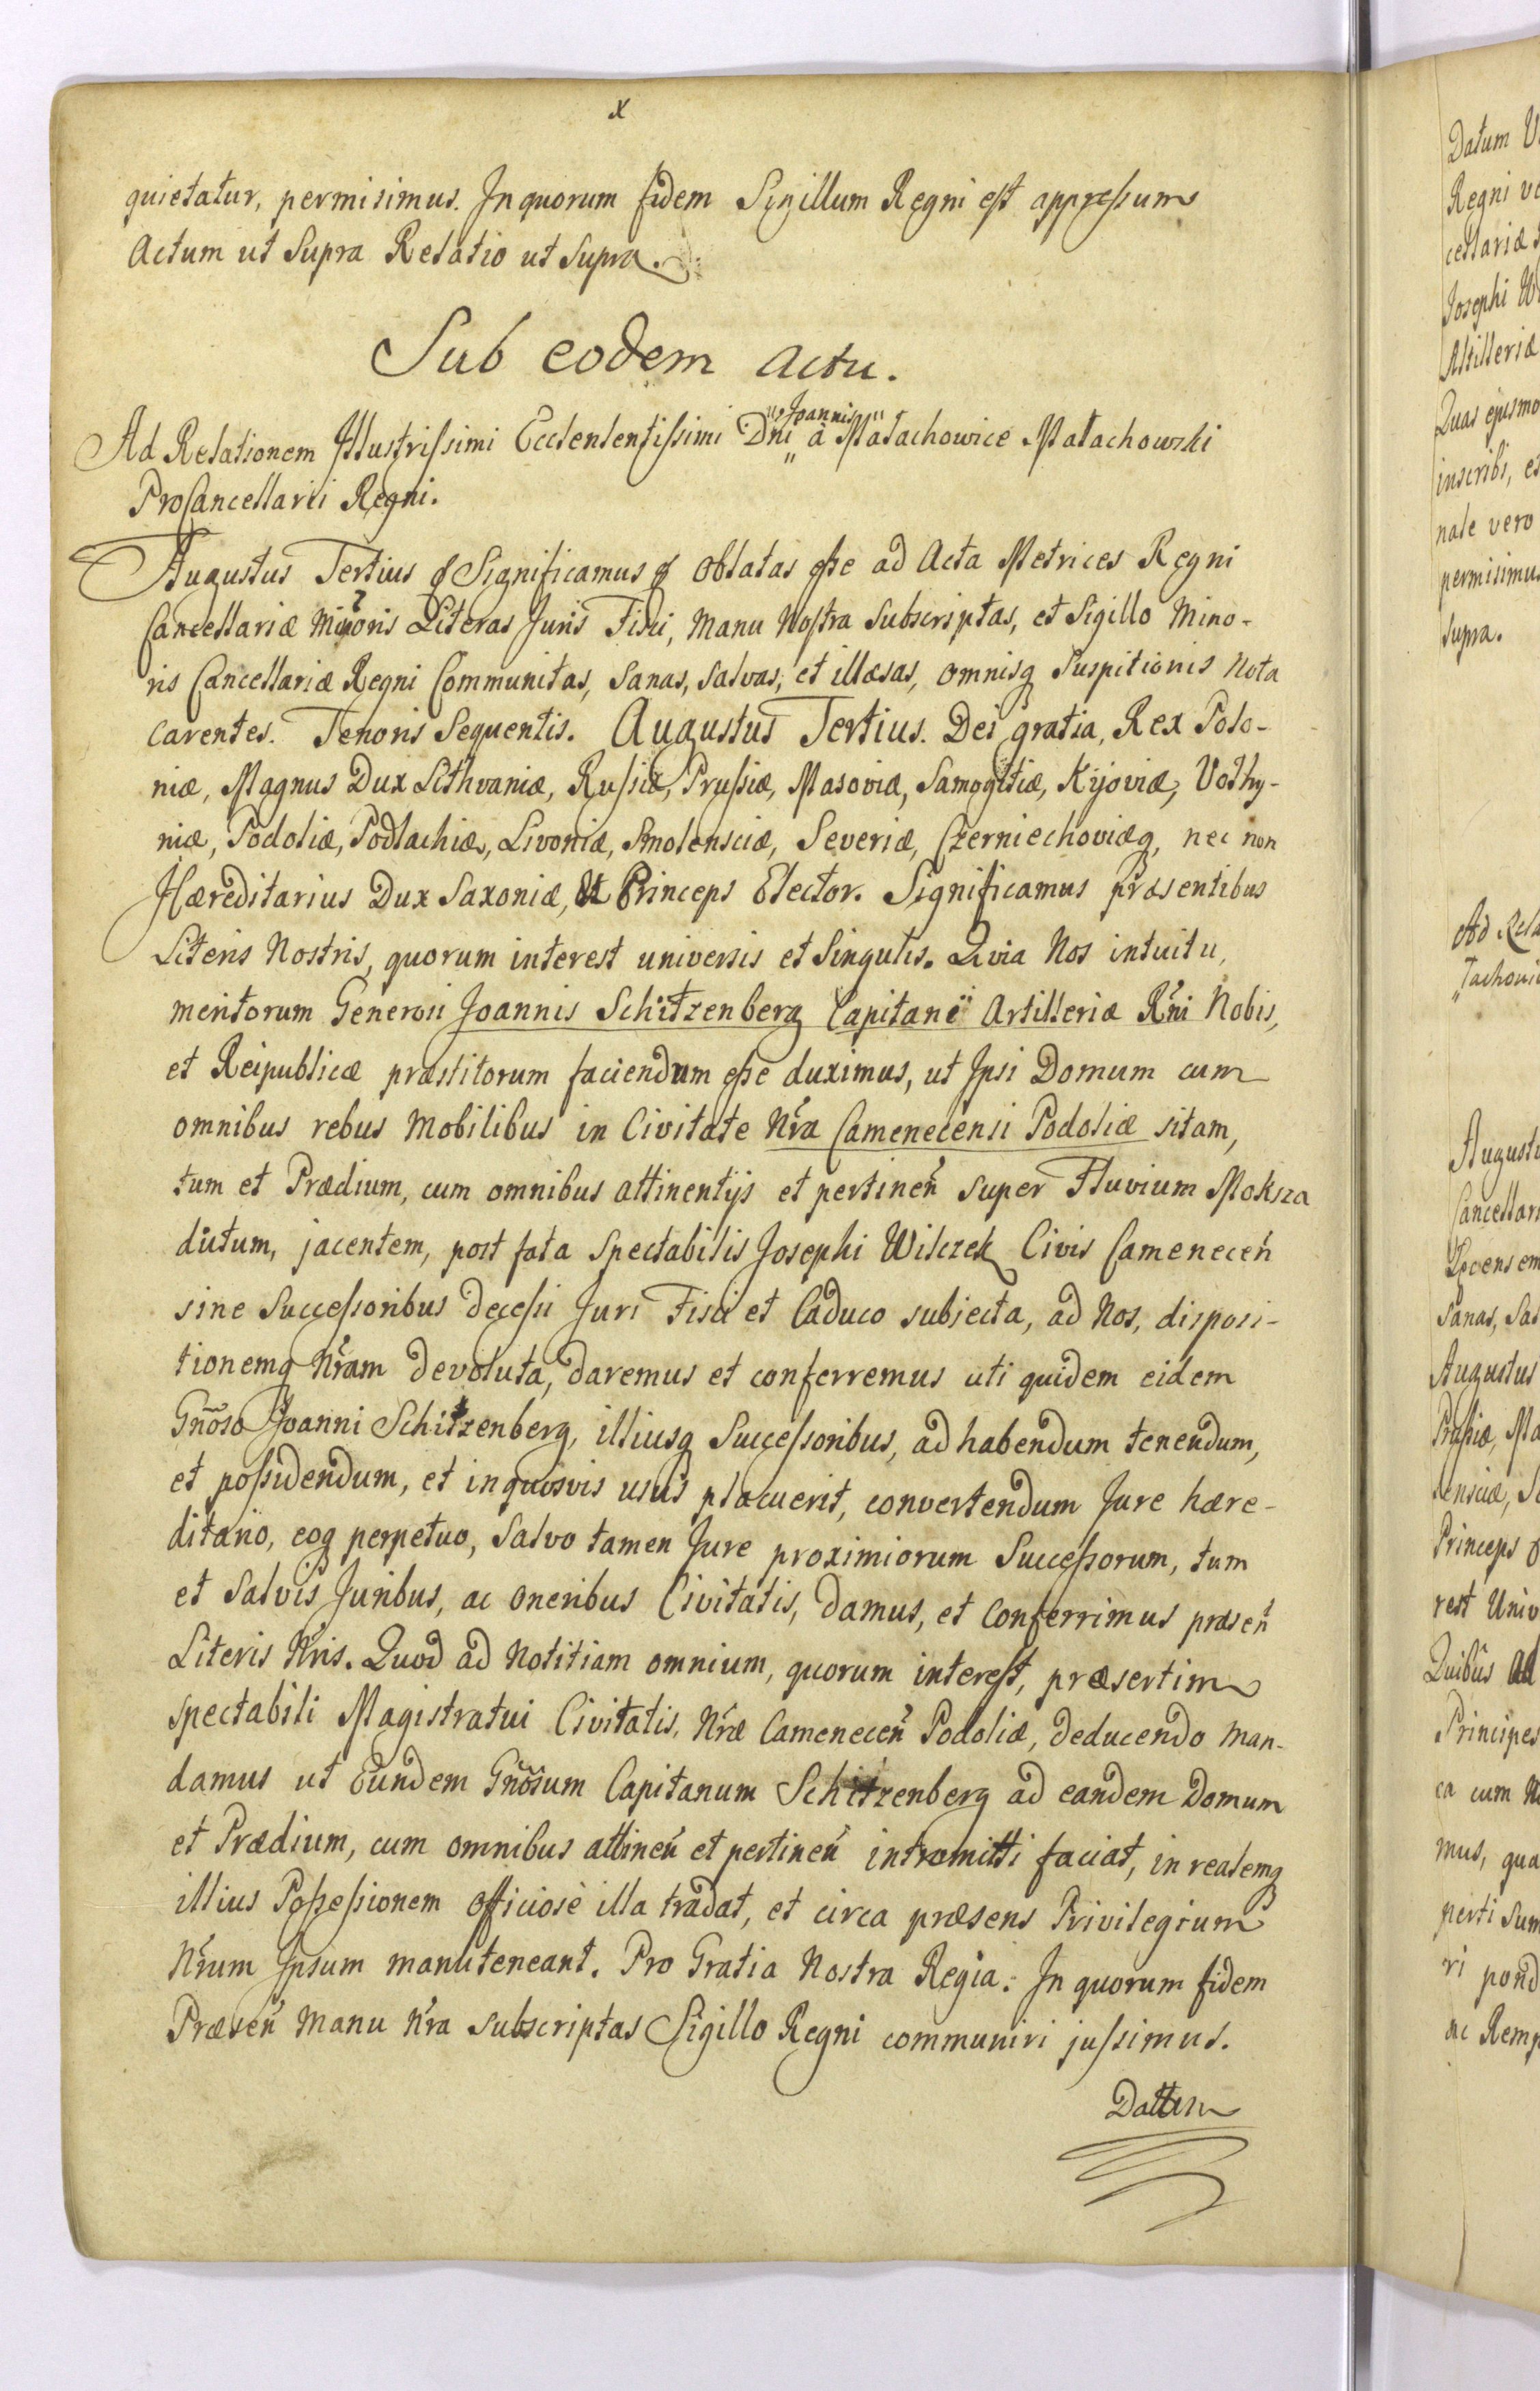 x
quietatur, permisimus. In quorum fidem Sigillum Regni est appressum
Actum ut Supra Relatio ut Supra.
Sub eodem actu.
Ad Relationem Illustrissimi Eccelentissimi Dni Joannis à Małachowice Małachowski
ProCancellarii Regni.
Augustus Tertius Significamus oblatas esse ad Acta Metrices Regni
Cancellariæ Minoris Literas Juris Fisci, manu Nostra Subscriptas, et Sigillo Mino-
ris Cancellariæ Regni Communitas, Sanas, Salvas, et illæsas, omnisq Suspitionis nota
carentes. Tenoris Sequentis. Augustus Tertius. Dei gratia, Rex Polo-
niæ, Magnus Dux Lithvaniæ, Russiæ, Prussiæ, Masoviæ, Samogitiæ, Kijoviæ, Volhy-
niæ, Podoliæ, Podlachiæ, Livoniæ, Smolensciæ, Severiæ, Czerniechoviæq, nec non
Hæreditarius Dux Saxoniæ, Et Princeps Elector. Significamus præsentibus
Literis Nostris, quorum interest universis et Singulis. Qvia Nos intuitu,
meritorum Generosi Joannis Schitzenberg Capitanei Artilleriæ Rni Nobis,
et Reipublicæ præstitorum faciendum esse duximus, ut Ipsi Domum cum
omnibus rebus Mobilibus in Civitate Nra Camenecensi Podoliæ sitam,
tum et Prædium, cum omnibus attinentijs et pertineñ super Fluvium Moksza
dictum, jacentem, post fata Spectabilis Josephi Wilczek Civis Cameneceñ
sine Successoribus decessi Juri Fisci et Caduco subjecta, ad Nos, disposi-
tionemq Nram devoluta, daremus et conferremus uti quidem eidem
Gnoso Joanni Schitzenberg, illiusq Successoribus, ad habendum tenendum,
et possidendum, et in quosvis usus placuerit, convertendum Jure hære-
ditario, eoq perpetuo, Salvo tamen Jure proximiorum Successorum, tum
et Salvis Juribus, ac oneribus Civitatis, damus, et Conferrimus præseñ
Literis Nris. Quod ad Notitiam omnium, quorum interest, præsertim
spectabili Magistratui Civitatis, Nræ Cameneceñ Podoliæ, deducendo man-
damus ut Eundem Gnosum Capitanum Schitzenberg ad eandem Domum
et Prædium, cum omnibus attineñ et pertineñ intromitti faciat, in realemq
illius Possessionem officiosè illa tradat, et circa præsens Privilegium
Nrum Ipsum manuteneant. Pro Gratia Nostra Regia. In quorum fidem
Præseñ Manu Nra subscriptas Sigillo Regni communiri jussimus.
Datum
Datum
Regni
Josephi
Artilleriæ
Quas ejusmo
inscribi,
nale vero
permisimus
supra.
Ad Rela
Augustu
Cancellari
Sanas,
Augustus
Prussiæ, Ma
Princeps
rest Univ
Quibus ad
Principes
ca cum
mus, qua
perti sum
ri pond
ac Remp